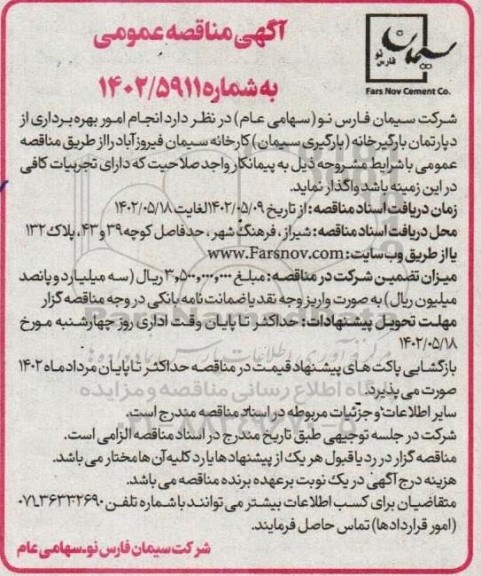 آگهی مناقصه عمومی
به شماره ۱۴۰۲/۵۹۱۱
سیمان
فارس نو
Fars Nov Cement Co.
شرکت سیمان فارس نو (سهامی عام) در نظر دارد انجام امور بهره‌برداری از
دپارتمان بارگیرخانه (بارگیری سیمان) کارخانه سیمان فیروزآباد را از طریق مناقصه
عمومی با شرایط مشروحه ذیل به پیمانکار واجد صلاحیت که دارای تجربیات کافی
در این زمینه باشد واگذار نماید.
زمان دریافت اسناد مناقصه: از تاریخ ۱۴۰۲/۰۵/۰۹ لغایت ۱۴۰۲/۰۵/۱۸
محل دریافت اسناد مناقصه: شیراز، فرهنگ شهر، حدفاصل کوچه ۳۹ و ۴۳، پلاک ۱۳۲
یا از طریق وب سایت: www.Farsnov.com
میزان تضمین شرکت در مناقصه: مبلغ ۳,۵۰۰,۰۰۰,۰۰۰ ریال (سه میلیارد و پانصد
میلیون ریال) به صورت واریز وجه نقد یا ضمانت نامه بانکی در وجه مناقصه گزار
مهلت تحویل پیشنهادات: حداکثر تا پایان وقت اداری روز چهارشنبه مورخ
۱۴۰۲/۰۵/۱۸
بازگشایی پاکت های پیشنهاد قیمت در مناقصه حداکثر تا پایان مرداد ماه ۱۴۰۲
صورت می پذیرد.
سایر اطلاعات و جزئیات مربوطه در اسناد مناقصه مندرج است.
شرکت در جلسه توجیهی طبق تاریخ مندرج در اسناد مناقصه الزامی است.
مناقصه گزار در رد یا قبول هر یک از پیشنهادها یا رد کلیه آن ها مختار می باشد.
هزینه درج آگهی در یک نوبت بر عهده برنده مناقصه می باشد.
متقاضیان برای کسب اطلاعات بیشتر می توانند با شماره تلفن ۰۷۱-۳۶۳۳۲۶۹۰
(امور قراردادها) تماس حاصل فرمایند.
شرکت سیمان فارس نو-سهامی عام